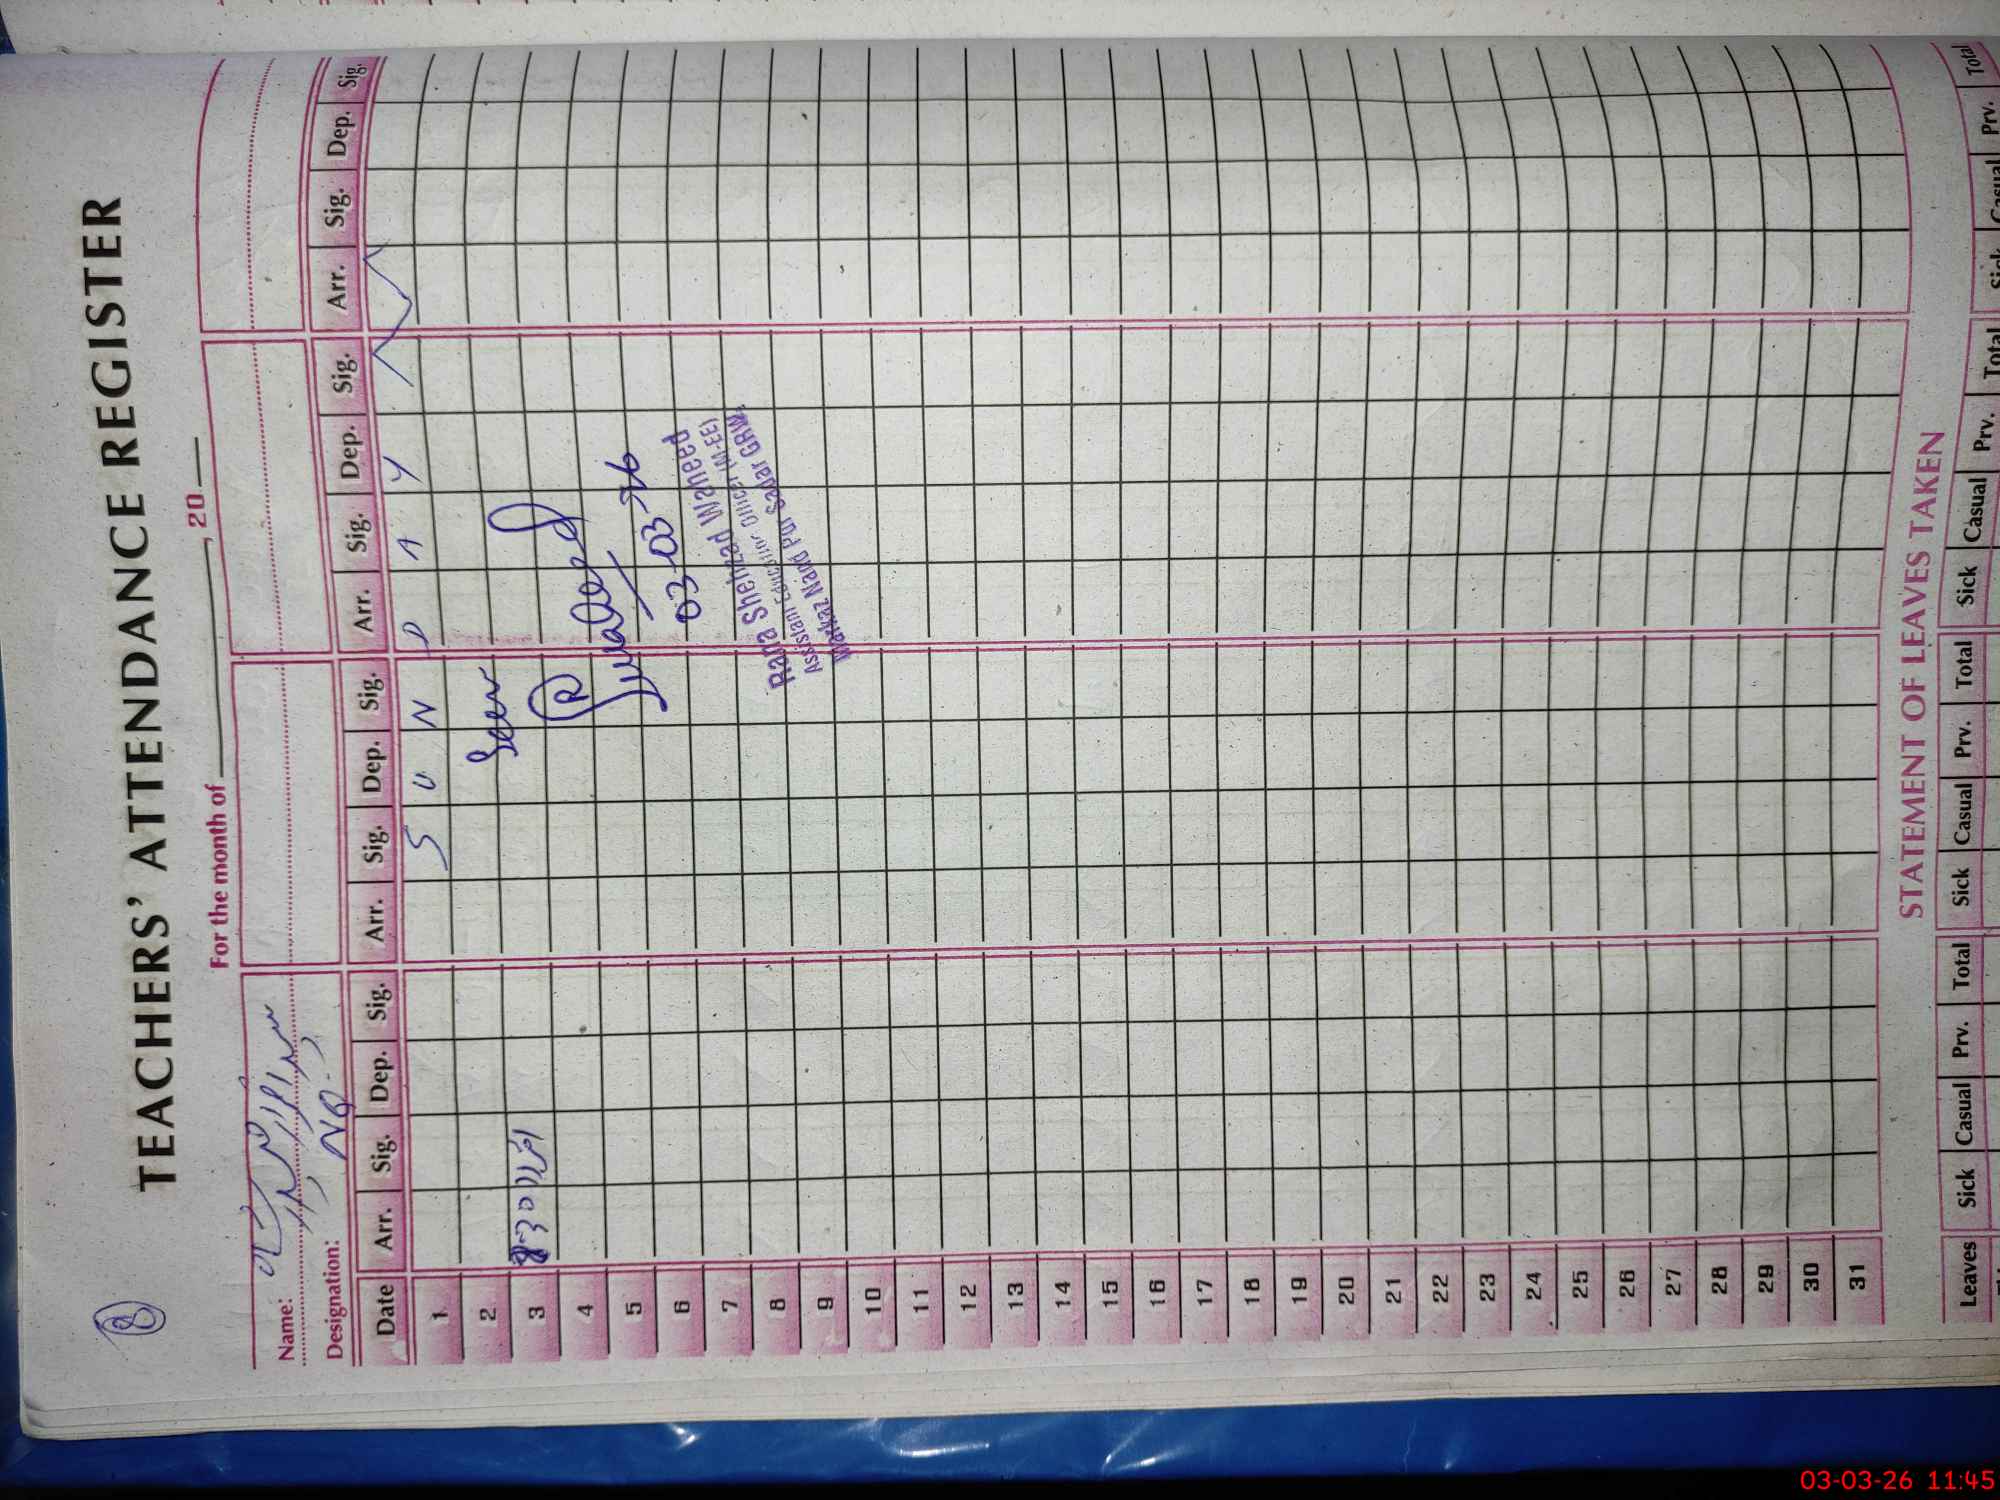 8
TEACHERS' ATTENDANCE REGISTER
For the month of ________, 20 __
Name:
Designation:
NQ.
Date Arr. Sig. Dep. Sig. Arr. Sig. Dep. Sig. Arr. Sig. Dep. Sig. Arr. Sig. Dep. Sig.
1 S U N D A Y
2 Seen
3 8:30
4
5 03-03-26
6
7 Rana Shehzad Waheed
Assistant Education Officer (M-EE)
Markaz Nand Pur Sadar GRW.
8
9
10
11
12
13
14
15
16
17
18
19
20
21
22
23
24
25
26
27
28
29
30
31
STATEMENT OF LEAVES TAKEN
Leaves Sick Casual Prv. Total Sick Casual Prv. Total Sick Casual Prv. Total Sick Casual Prv. Total
03-03-26 11:45